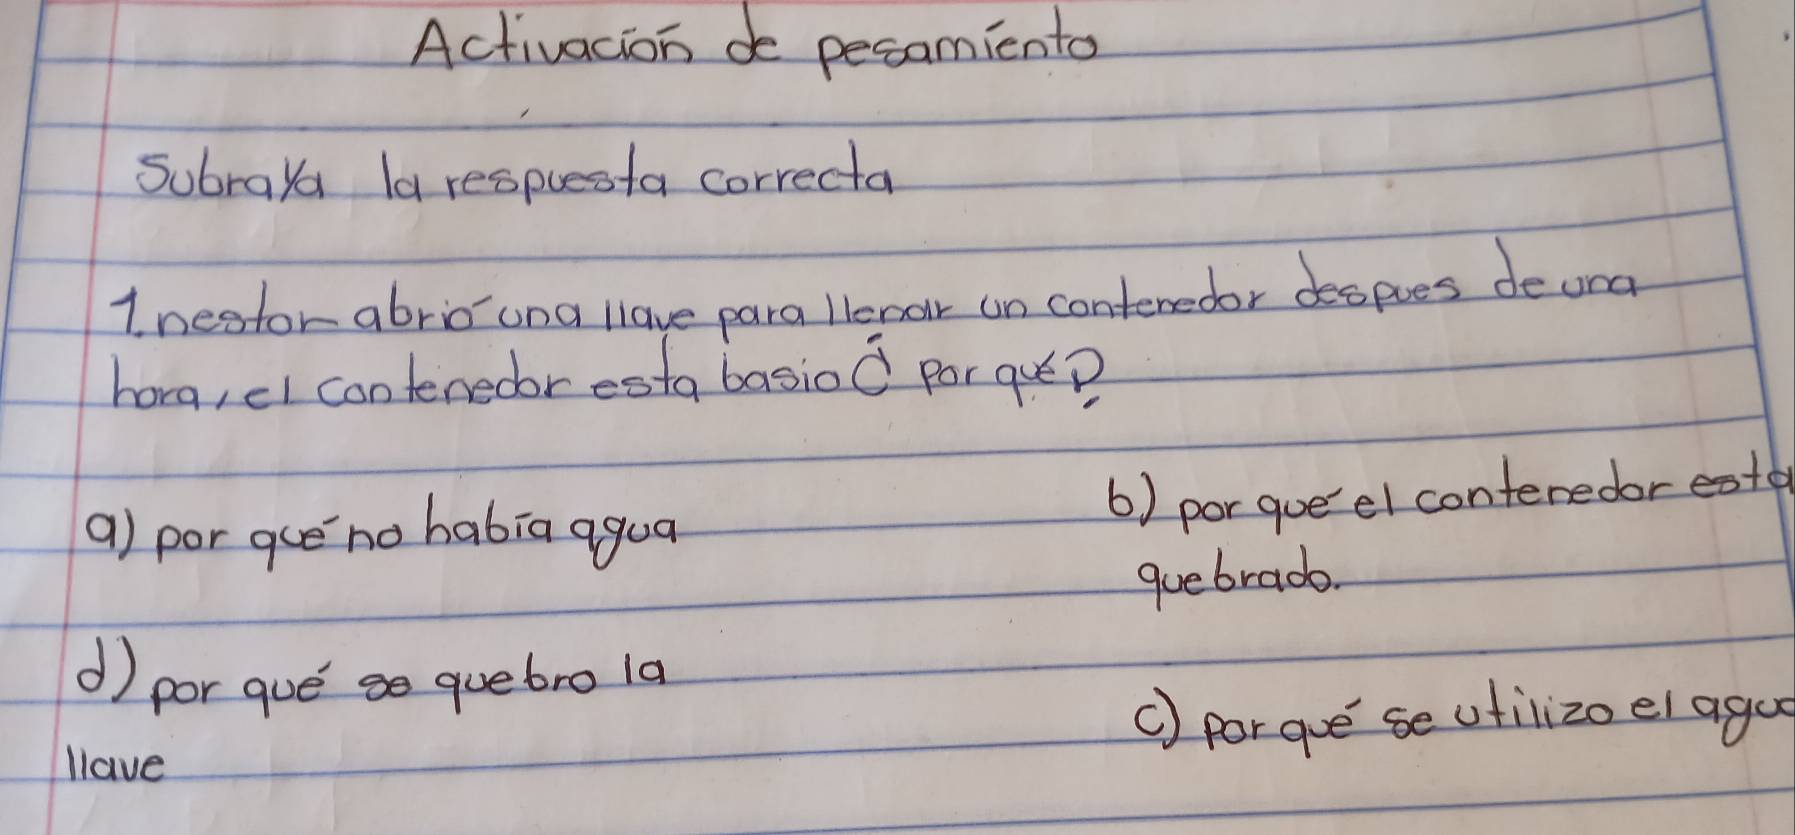 Activación de pesamiento
Subraya la respuesta correcta
1. nestor abrió una llave para llenar un contenedor despues de una
hora, el contenedor esta basio ¿ Por qué?
a) por qué no había agua
b) por qué el contenedor esta
quebrado.
d) por qué se quebro la
llave
c) por qué se utilizo el agua